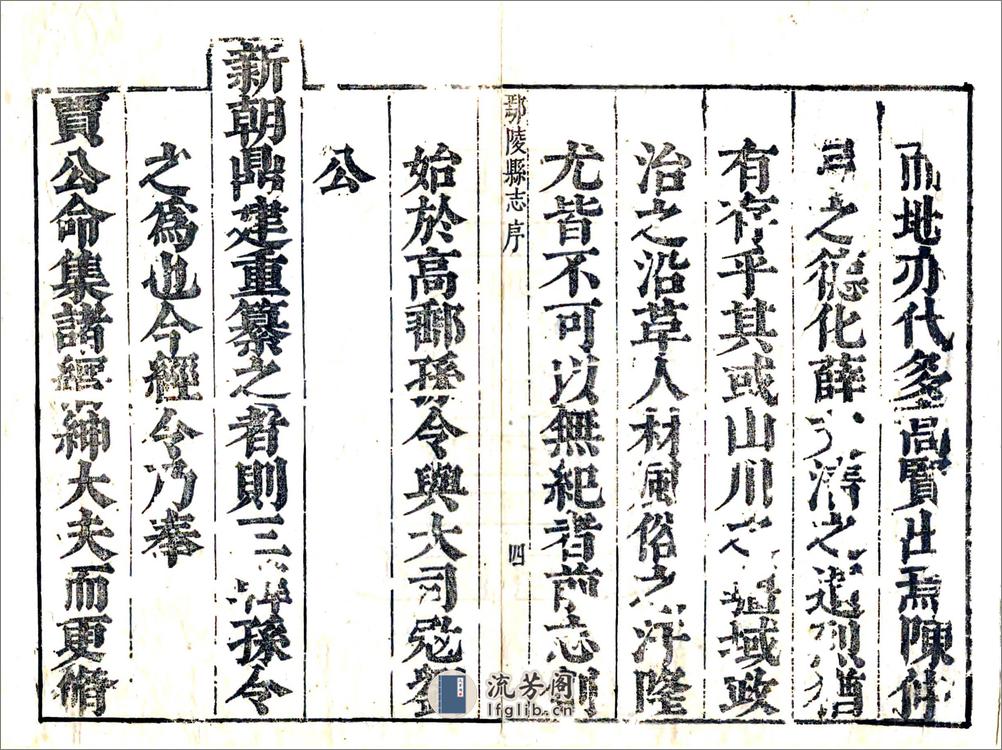 而地亦代多高賢出焉陳仲
弓之德化薛 之遺烈猶
有存乎其或山川 疆域政
治之沿革人材風俗之汙隆
尤皆不可以無紀者前志創
鄢陵縣志序
四
始於高郵孫令與大司寇劉
公
新朝鼎建重纂之者則三韓孫令
之為也今經令乃奉
賈公命集諸縉紳大夫而更脩
流芳阁
lfglib.cn